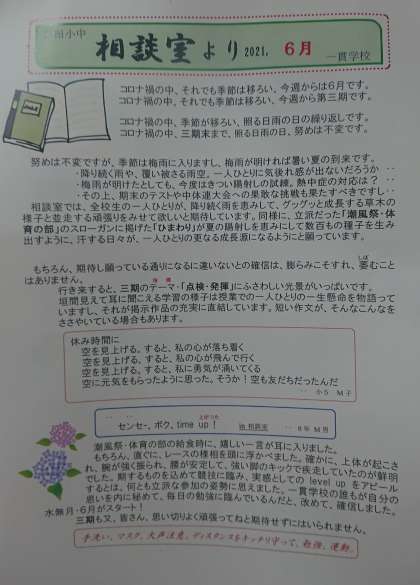 小中
相談室より 2021. 6月 一貫学校
コロナ禍の中、それでも季節は移ろい、今週からは6月です。
コロナ禍の中、それでも季節は移ろい、今週から第三期です。
コロナ禍の中、季節が移ろい、照る日雨の日の繰り返しです。
コロナ禍の中、三期末まで、照る日雨の日、努めは不変です。
努めは不変ですが、季節は梅雨に入りますし、梅雨が明ければ暑い夏の到来です。
・降り続く雨や、覆い被さる雨空。一人ひとりに気後れ感が出ないだろうか‥
・梅雨が明けたとしても、今度はきつい陽射しの試練。熱中症の対応は?‥
・その上、期末のテストや中体連大会への果敢な挑戦も果たすべきですし‥
相談室では、全校生の一人ひとりが、降り続く雨を恵みして、グッグッと成長する草木の
様子と並走する頑張りをみせて欲しいと期待しています。同様に、立派だった「潮風祭・体
育の部」のスローガンに掲げた「ひまわり」が夏の陽射しを恵みにして数百もの種子を生み
出すように、汗する日々が、一人ひとりの更なる成長源になるようにと願っています。
もちろん、期待し願っている通りになるに違いないとの確信は、膨らみこそすれ、萎むこと
はありません。
行き来すると、三期のテーマ・「点検・発揮」にふさわしい光景がいっぱいです。
垣間見えて耳に聞こえる学習の様子は授業での一人ひとりの一生懸命を物語って
いますし、それが掲示作品の充実に直結しています。短い作文が、そんなこんなを
ささやいている場合もあります。
休み時間に
空を見上げる。すると、私の心が落ち着く
空を見上げる。すると、私の心が飛んで行く
空を見上げる。すると、私に勇気が湧いてくる
空に元気をもらったように思った。そうか!空も友だちだったんだ
‥小5 M子
センセー、ボク、time up! in 相談室 ‥8年 M男
潮風祭・体育の部の給食時に、嬉しい一言が耳に入りました。
もちろん、直ぐに、レースの様相を頭に浮かべました。確かに、上体が起こさ
れ、腕が強く振られ、腰が安定して、強い脚のキックで疾走していたのが鮮明
でした。期するものを込めて競技に臨み、実感としての level up をアピール
するとは、何とも立派な参加の姿勢に思えました。一貫学校の誰もが自分の
思いを内に秘めて、毎日の勉強に臨んでいるんだと、改めて、確信しました。
水無月・6月がスタート!
三期も又、皆さん、思い切りよく頑張ってねと期待せずにはいられません。
手洗い、マスク、大声注意、ディスタンスをキッチリ守って、勉強、運動。